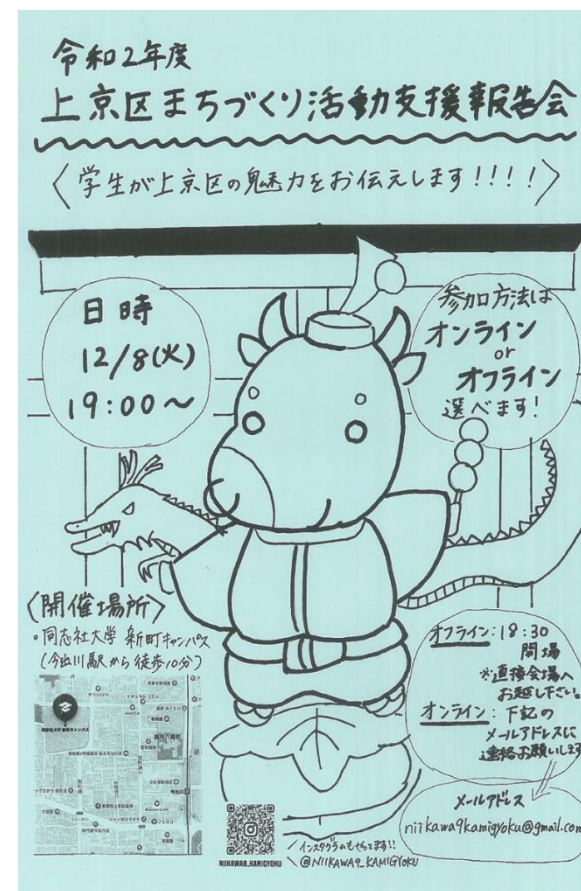 令和2年度
上京区まちづくり活動支援報告会
〈学生が上京区の魅力をお伝えします!!!!〉
日時
12/8(火)
19:00~
参加方法は
オンライン
or
オフライン
選べます!
〈開催場所〉
・同志社大学 新町キャンパス
(今出川駅から徒歩10分)
オフライン:18:30
開場
※直接会場へ
お越し下さい
オンライン:下記の
メールアドレスに
連絡お願いします
メールアドレス
niikawa9kamigyoku@gmail.com
NIIKAWA9_KAMIGYOKU
インスタグラムもやってます!!
@NIIKAWA9_KAMIGYOKU